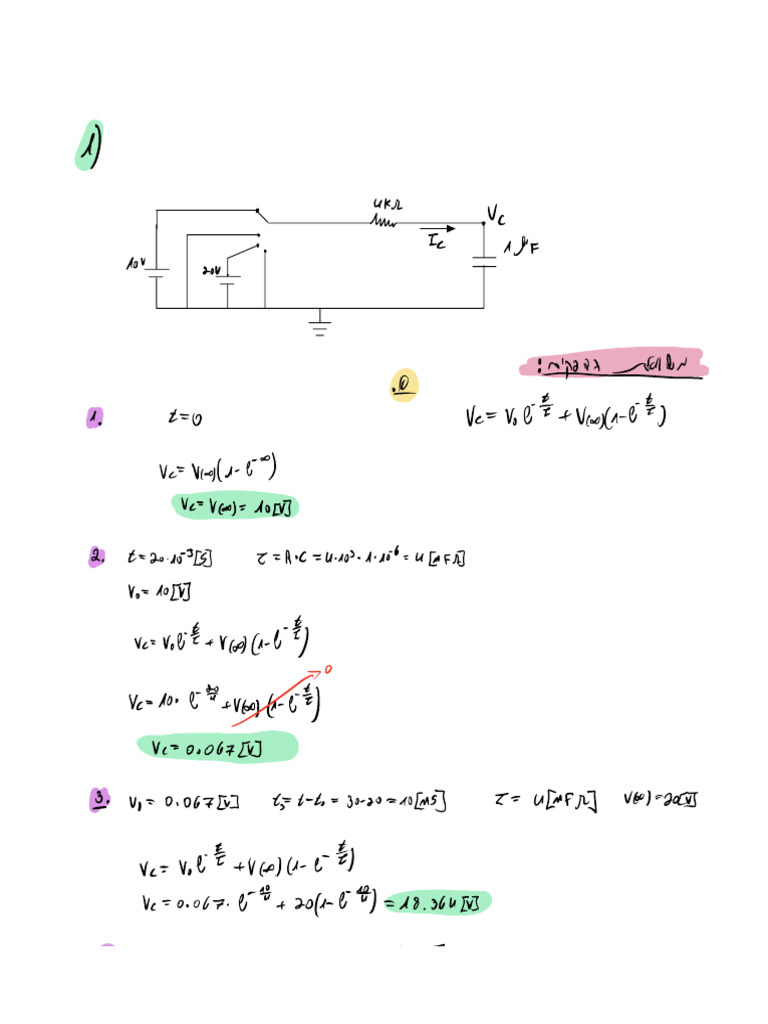 1)
4KΩ
Vc
Ic
1 μF
10V
20V
.0
1. t=0 Vc = V₀ e^(-t/τ) + V(∞)(1-e^(-t/τ))
Vc = V(∞)(1-e^(-∞))
Vc = V(∞) = 10[V]
2. t=20·10^(-3)[S] τ = R·C = 4·10³·1·10^(-6) = 4[mFΩ]
V₀ = 10[V]
Vc = V₀e^(-t/τ) + V(∞)(1-e^(-t/τ))
Vc = 10·e^(-20/4) + V(∞)(1-e^(-t/τ)) → 0
Vc = 0.067[V]
3. V₀ = 0.067[V] t₃ = t-t₀ = 30-20 = 10[mS] τ = 4[mFΩ] V(∞) = 20[V]
Vc = V₀e^(-t/τ) + V(∞)(1-e^(-t/τ))
Vc = 0.067·e^(-10/4) + 20(1-e^(-10/4)) = 18.364[V]